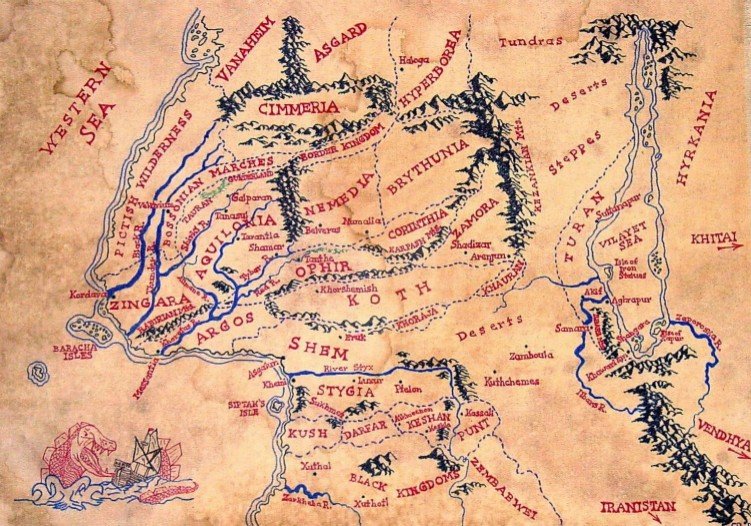 WESTERN SEA
VANAHEIM
ASGARD
Haloga
HYPERBOREA
Tundras
CIMMERIA
Deserts
HYRKANIA
PICTISH WILDERNESS
BOSSONIAN MARCHES
BORDER KINGDOM
Steppes
TAURAN
Galparan
Tanasul
AQUILONIA
Tarantia
Shamar
NEMEDIA
Belverus
Numalia
BRYTHUNIA
CORINTHIA
KARPASH MTS.
ZAMORA
Shadizar
Arenjun
KEZANKIAN MTS.
TURAN
Sultanapur
VILAYET SEA
Isle of Iron Statues
KHITAI
Akif
Aghrapur
Kordava
ZINGARA
ARGOS
Messantia
BARACHA ISLES
OPHIR
Khorshemish
KOTH
KHORAJA
KHAURAN
Deserts
Samara
Khawarizm
Zaporoska R.
Ilbars R.
SHEM
Eruk
Asgalun
River Styx
Khemi
STYGIA
Luxur
Pteion
SIPTAH'S ISLE
Sukhmet
Zamboula
Kuthchemes
KUSH
DARFAR
KESHAN
Kassali
PUNT
Xuthal
BLACK KINGDOMS
ZEMBABWEI
Zarkheba R.
Xuchotl
VENDHYA
IRANISTAN